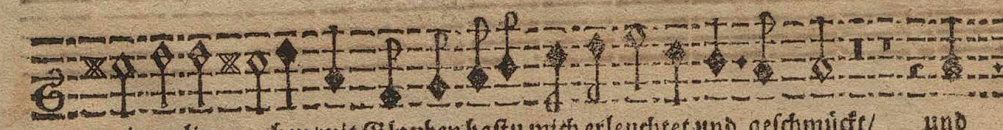 mit Glauben hastu mich erleuchtet und geschmückt/ und